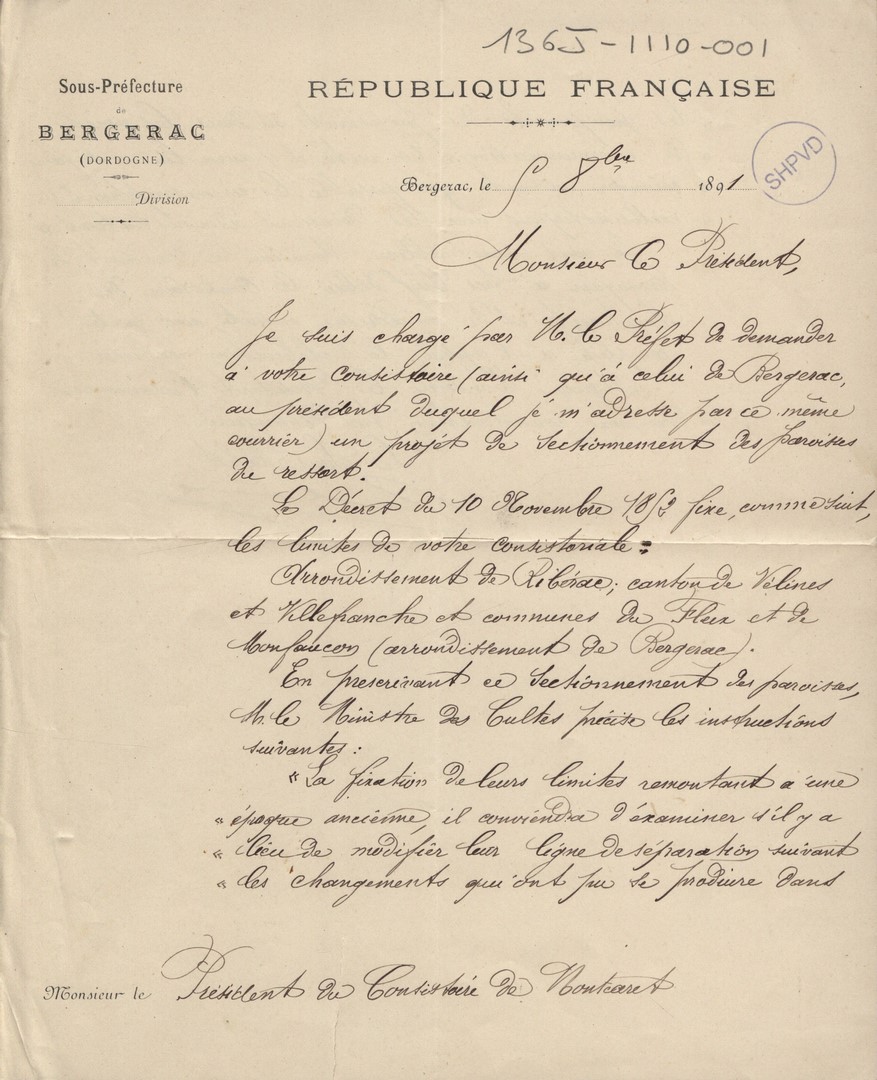 136J-1110-001
Sous-Préfecture
de
BERGERAC
(DORDOGNE)
Division
RÉPUBLIQUE FRANÇAISE
Bergerac, le 8bre 1891
SHPVD
Monsieur le Président,
Je suis chargé par M. le Préfet de demander
à votre consistoire (ainsi qu'à celui de Bergerac,
au président duquel je m'adresse par ce même
courrier) un projet de sectionnement des paroisses
du ressort.
Le Décret du 10 Novembre 1852 fixe, comme suit,
les limites de votre consistoriale :
Arrondissement de Ribérac; canton de Vélines
et Villefranche et communes du Fleix et de
Monfaucon (arrondissement de Bergerac).
En prescrivant ce sectionnement des paroisses,
M. le Ministre des Cultes précise les instructions
suivantes :
« La fixation de leurs limites remontant à une
« époque ancienne, il conviendra d'examiner s'il y a
« lieu de modifier leur ligne de séparation suivant
« les changements qui ont pu se produire dans
Monsieur le Président du Consistoire de Montcaret